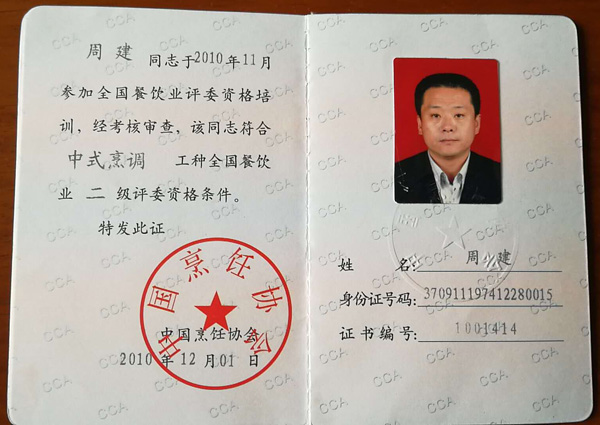 周建 同志于2010年11月
参加全国餐饮业评委资格培
训，经考核审查，该同志符合
中式烹调 工种全国餐饮
业 二 级评委资格条件。
特发此证
中国烹饪协会
中国烹饪协会
2010年12月01日
姓 名: 周建
身份证号码: 370911197412280015
证书编号: 1001414
CCA